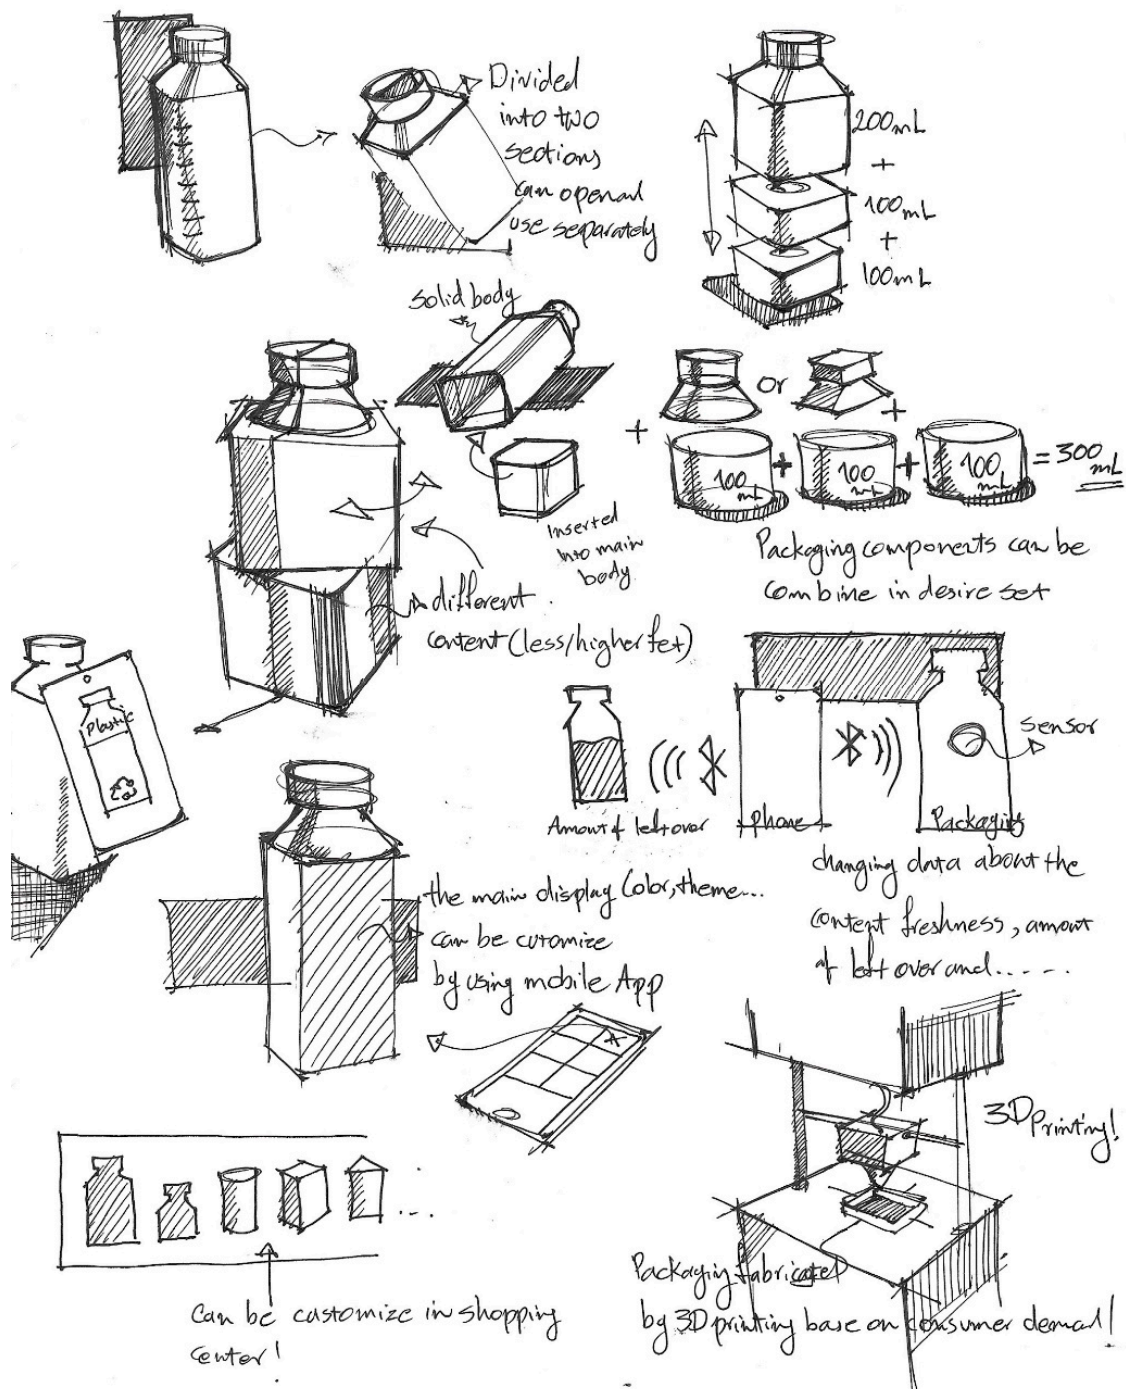 Divided
into two
sections
can open and
use separately
200mL
+
100mL
+
100mL
Solid body
Inserted
into main
body
+
or
+
100 mL + 100 mL + 100 mL = 300 mL
Packaging components can be
combine in desire set
different
content (less/higher fet)
Plastic
Amount of left over
Phone
Packaging
Sensor
changing data about the
content freshness, amount
of left over and.....
the main display Color, theme...
can be cutomize
by using mobile App
3D Printing!
Packaging fabricated
by 3D printing base on consumer demad!
...
Can be customize in shopping
center!